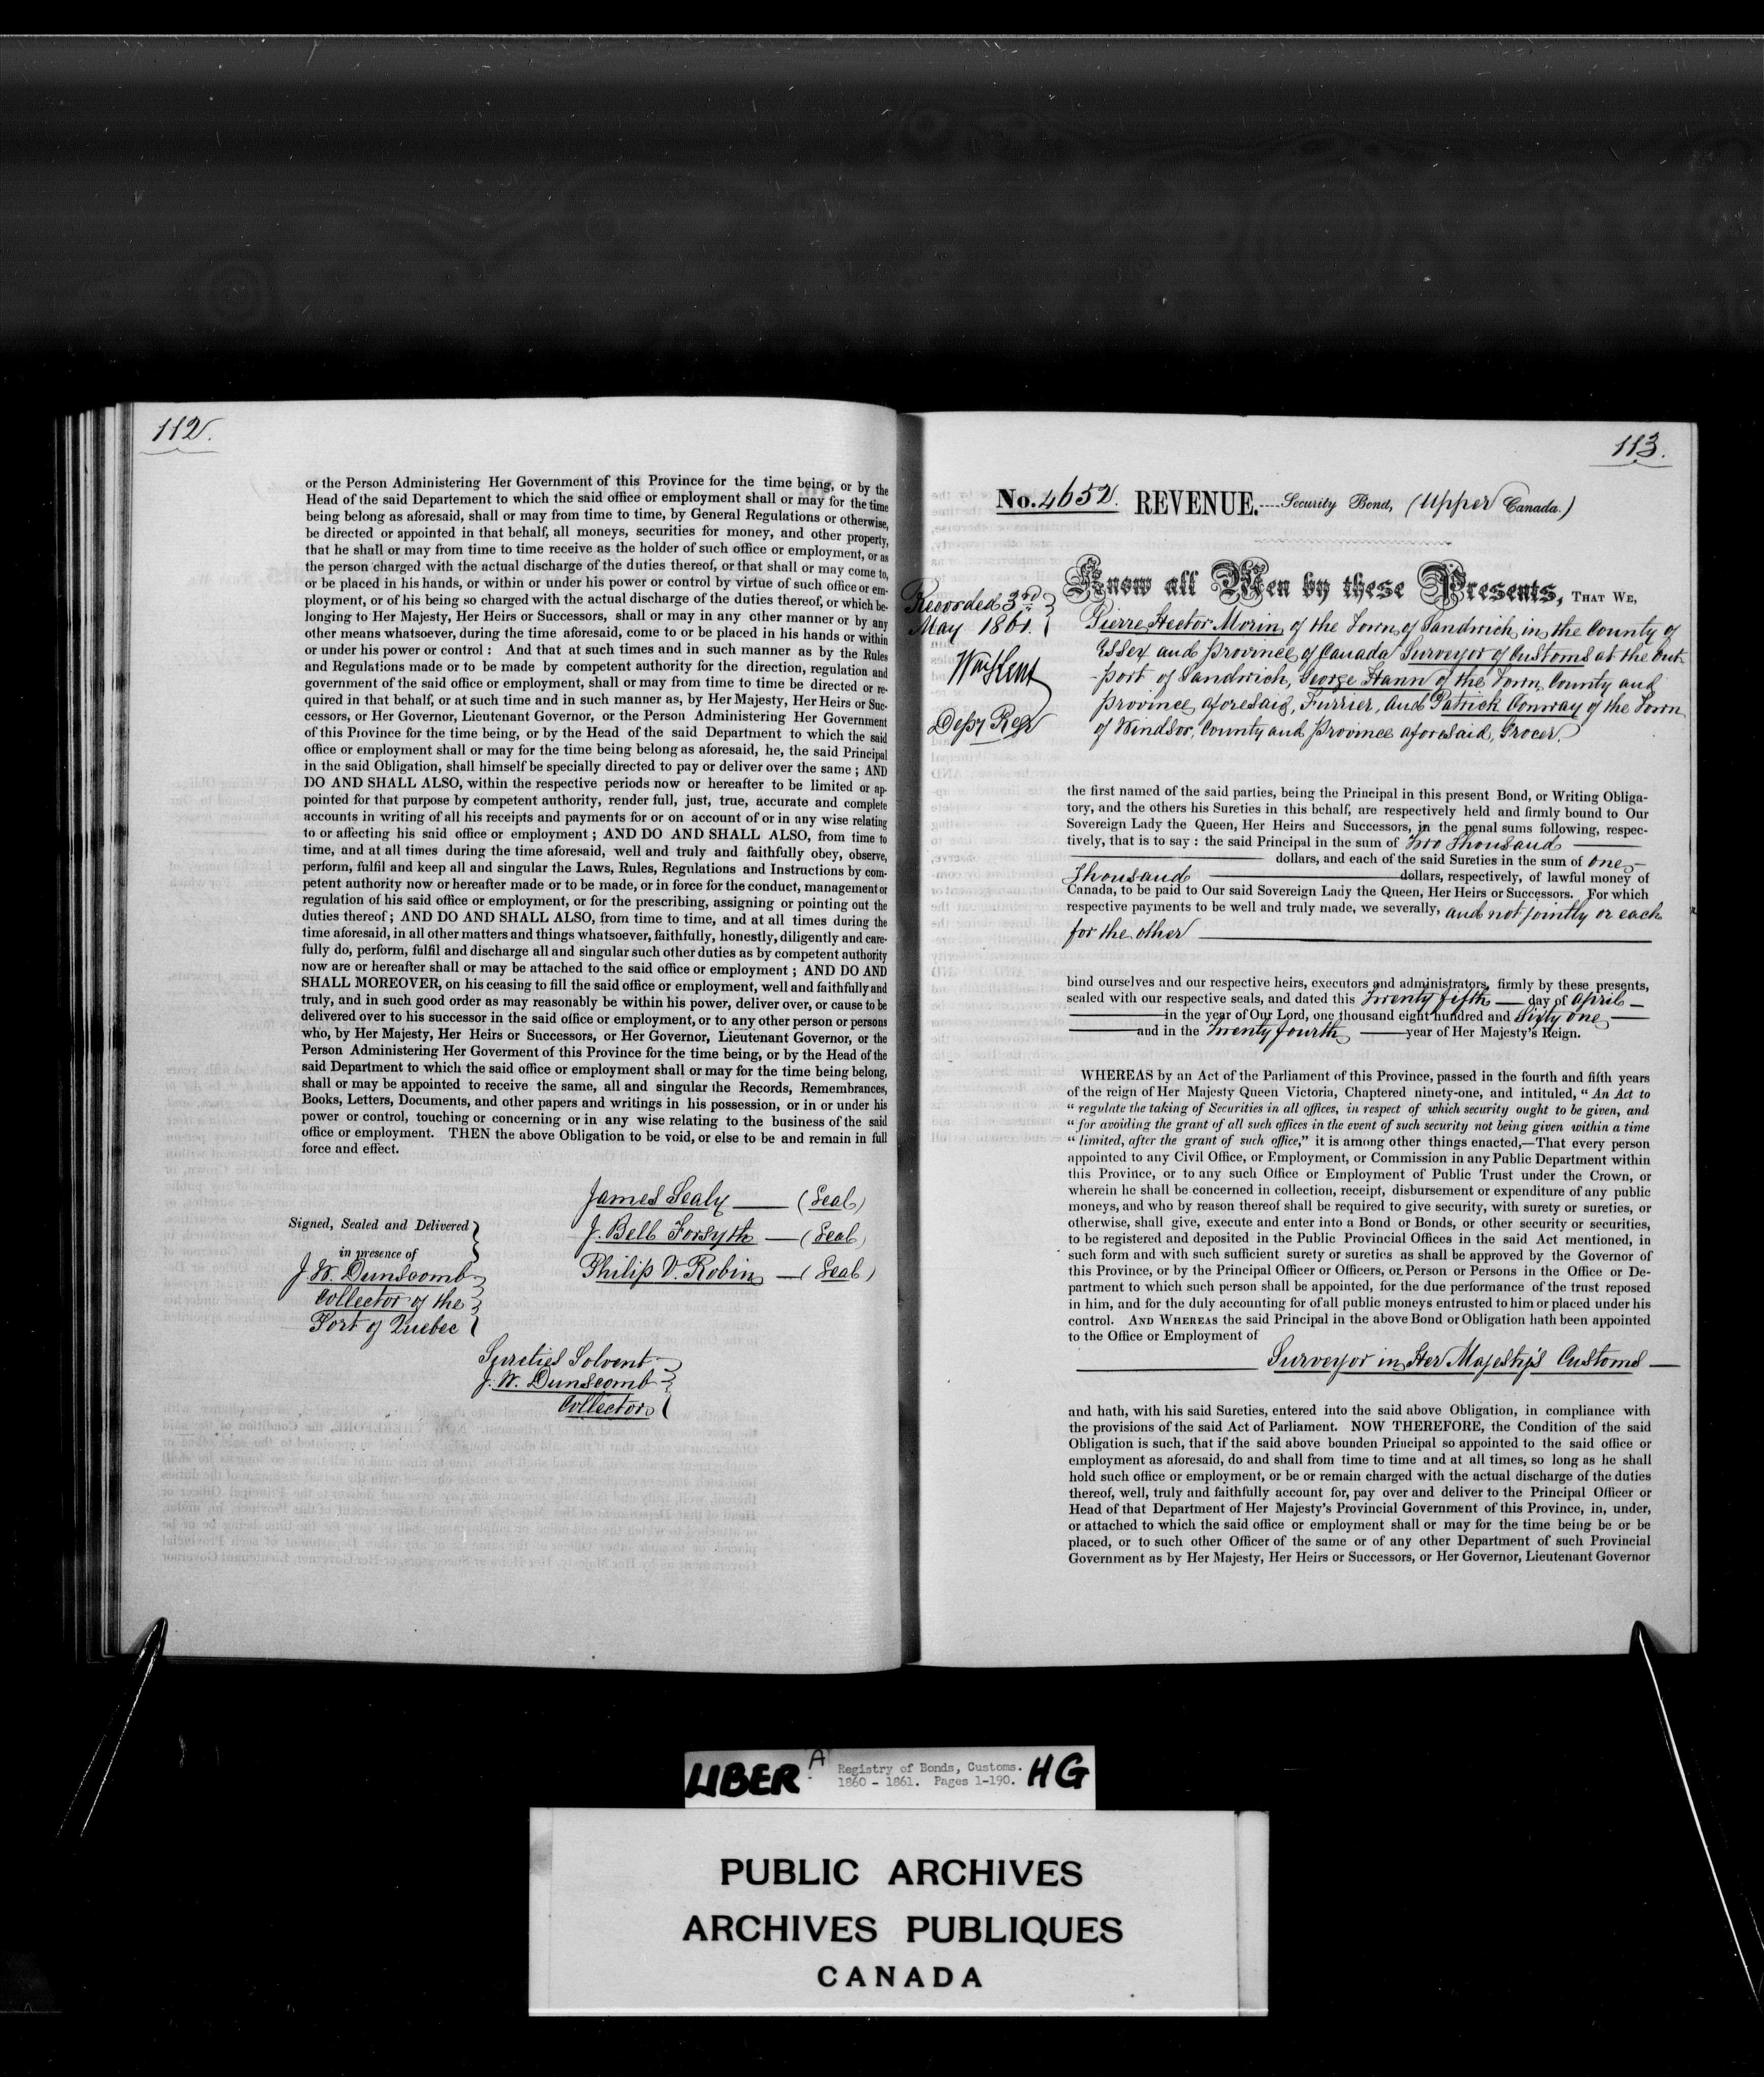 112.
or the Person Administering Her Government of this Province for the time being, or by the
Head of the said Departement to which the said office or employment shall or may for the time
being belong as aforesaid, shall or may from time to time, by General Regulations or otherwise,
be directed or appointed in that behalf, all moneys, securities for money, and other property,
that he shall or may from time to time receive as the holder of such office or employment, or as
the person charged with the actual discharge of the duties thereof, or that shall or may come to,
or be placed in his hands, or within or under his power or control by virtue of such office or em-
ployment, or of his being so charged with the actual discharge of the duties thereof, or which be-
longing to Her Majesty, Her Heirs or Successors, shall or may in any other manner or by any
other means whatsoever, during the time aforesaid, come to or be placed in his hands or within
or under his power or control : And that at such times and in such manner as by the Rules
and Regulations made or to be made by competent authority for the direction, regulation and
government of the said office or employment, shall or may from time to time be directed or re-
quired in that behalf, or at such time and in such manner as, by Her Majesty, Her Heirs or Suc-
cessors, or Her Governor, Lieutenant Governor, or the Person Administering Her Government
of this Province for the time being, or by the Head of the said Department to which the said
office or employment shall or may for the time being belong as aforesaid, he, the said Principal
in the said Obligation, shall himself be specially directed to pay or deliver over the same ; AND
DO AND SHALL ALSO, within the respective periods now or hereafter to be limited or ap-
pointed for that purpose by competent authority, render full, just, true, accurate and complete
accounts in writing of all his receipts and payments for or on account of or in any wise relating
to or affecting his said office or employment ; AND DO AND SHALL ALSO, from time to
time, and at all times during the time aforesaid, well and truly and faithfully obey, observe,
perform, fulfil and keep all and singular the Laws, Rules, Regulations and Instructions by com-
petent authority now or hereafter made or to be made, or in force for the conduct, management or
regulation of his said office or employment, or for the prescribing, assigning or pointing out the
duties thereof ; AND DO AND SHALL ALSO, from time to time, and at all times during the
time aforesaid, in all other matters and things whatsoever, faithfully, honestly, diligently and care-
fully do, perform, fulfil and discharge all and singular such other duties as by competent authority
now are or hereafter shall or may be attached to the said office or employment ; AND DO AND
SHALL MOREOVER, on his ceasing to fill the said office or employment, well and faithfully and
truly, and in such good order as may reasonably be within his power, deliver over, or cause to be
delivered over to his successor in the said office or employment, or to any other person or persons
who, by Her Majesty, Her Heirs or Successors, or Her Governor, Lieutenant Governor, or the
Person Administering Her Goverment of this Province for the time being, or by the Head of the
said Department to which the said office or employment shall or may for the time being belong,
shall or may be appointed to receive the same, all and singular the Records, Remembrances,
Books, Letters, Documents, and other papers and writings in his possession, or in or under his
power or control, touching or concerning or in any wise relating to the business of the said
office or employment. THEN the above Obligation to be void, or else to be and remain in full
force and effect.
James Sealy — (Seal)
J. Bell Forsyth — (Seal)
Philip V. Robin — (Seal)
Signed, Sealed and Delivered
in presence of
J. W. Dunscomb
Collector of the
Port of Quebec
Sureties Solvent
J. W. Dunscomb
Collector
113.
No. 4652. REVENUE.----Security Bond, (Upper Canada.)
Know all Men by these Presents, THAT WE,
Recorded 3rd
May 1861.
Wm Kent
Depy Regr
Pierre Hector Morin of the Town of Sandwich in the County of
Essex and Province of Canada Surveyor of Customs at the Out
-port of Sandwich, George Hann of the Town, County and
Province aforesaid, Furrier, and Patrick Conway of the Town
of Windsor, County and Province aforesaid, Grocer.
the first named of the said parties, being the Principal in this present Bond, or Writing Obliga-
tory, and the others his Sureties in this behalf, are respectively held and firmly bound to Our
Sovereign Lady the Queen, Her Heirs and Successors, in the penal sums following, respec-
tively, that is to say : the said Principal in the sum of Two Thousand —
— dollars, and each of the said Sureties in the sum of one —
Thousand — dollars, respectively, of lawful money of
Canada, to be paid to Our said Sovereign Lady the Queen, Her Heirs or Successors. For which
respective payments to be well and truly made, we severally, and not jointly or each
for the other —
bind ourselves and our respective heirs, executors and administrators, firmly by these presents,
sealed with our respective seals, and dated this Twenty fifth — day of April —
— in the year of Our Lord, one thousand eight hundred and Sixty one —
— and in the Twenty fourth — year of Her Majesty's Reign.
WHEREAS by an Act of the Parliament of this Province, passed in the fourth and fifth years
of the reign of Her Majesty Queen Victoria, Chaptered ninety-one, and intituled, " An Act to
" regulate the taking of Securities in all offices, in respect of which security ought to be given, and
" for avoiding the grant of all such offices in the event of such security not being given within a time
" limited, after the grant of such office," it is among other things enacted,—That every person
appointed to any Civil Office, or Employment, or Commission in any Public Department within
this Province, or to any such Office or Employment of Public Trust under the Crown, or
wherein he shall be concerned in collection, receipt, disbursement or expenditure of any public
moneys, and who by reason thereof shall be required to give security, with surety or sureties, or
otherwise, shall give, execute and enter into a Bond or Bonds, or other security or securities,
to be registered and deposited in the Public Provincial Offices in the said Act mentioned, in
such form and with such sufficient surety or sureties as shall be approved by the Governor of
this Province, or by the Principal Officer or Officers, or Person or Persons in the Office or De-
partment to which such person shall be appointed, for the due performance of the trust reposed
in him, and for the duly accounting for of all public moneys entrusted to him or placed under his
control. AND WHEREAS the said Principal in the above Bond or Obligation hath been appointed
to the Office or Employment of
— Surveyor in Her Majesty's Customs —
and hath, with his said Sureties, entered into the said above Obligation, in compliance with
the provisions of the said Act of Parliament. NOW THEREFORE, the Condition of the said
Obligation is such, that if the said above bounden Principal so appointed to the said office or
employment as aforesaid, do and shall from time to time and at all times, so long as he shall
hold such office or employment, or be or remain charged with the actual discharge of the duties
thereof, well, truly and faithfully account for, pay over and deliver to the Principal Officer or
Head of that Department of Her Majesty's Provincial Government of this Province, in, under,
or attached to which the said office or employment shall or may for the time being be or be
placed, or to such other Officer of the same or of any other Department of such Provincial
Government as by Her Majesty, Her Heirs or Successors, or Her Governor, Lieutenant Governor
LIBER A HG
Registry of Bonds, Customs.
1860 - 1861. Pages 1-190.
PUBLIC ARCHIVES
ARCHIVES PUBLIQUES
CANADA